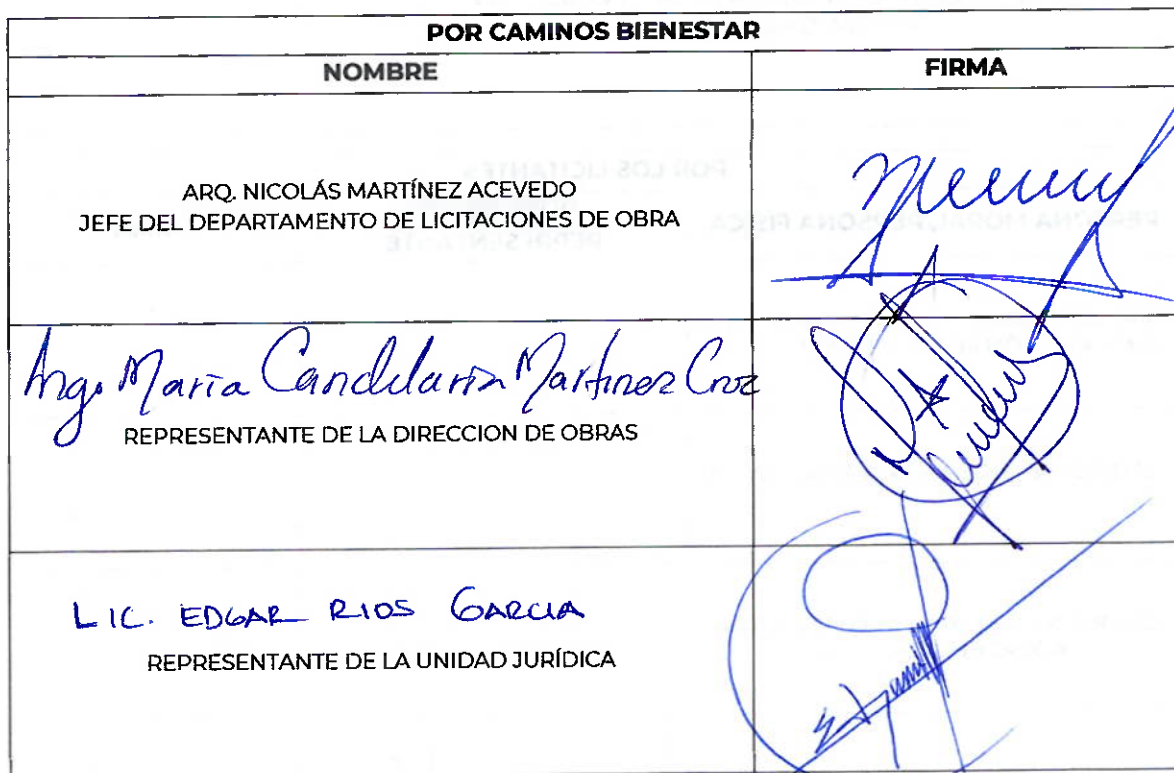 POR CAMINOS BIENESTAR
NOMBRE
FIRMA
ARQ. NICOLÁS MARTÍNEZ ACEVEDO
JEFE DEL DEPARTAMENTO DE LICITACIONES DE OBRA
Ing. María Candelaria Martínez Cruz
REPRESENTANTE DE LA DIRECCION DE OBRAS
LIC. EDGAR RIOS GARCIA
REPRESENTANTE DE LA UNIDAD JURÍDICA